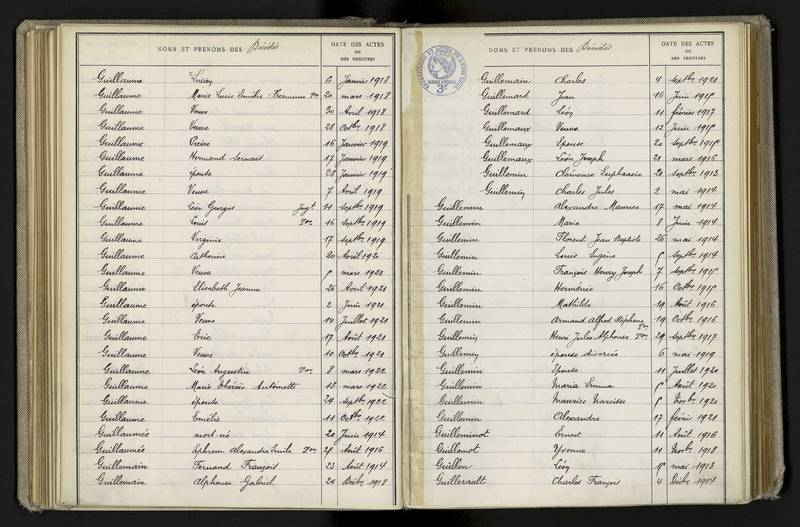 NOMS ET PRENOMS DES Décédés
DATE DES ACTES
OU
DES REGISTRES
Guillaume Lucien 6 Janvier 1918
Guillaume Marie Lucie Emélie Hermence 20 mars 1918
Guillaume Veuve 30 Avril 1918
Guillaume Veuve 28 Octbre 1918
Guillaume 16 Janvier 1919
Guillaume Hermand Servais 17 Janvier 1919
Guillaume épouse 28 Janvier 1919
Guillaume Veuve 7 Août 1919
Guillaume Léon Georges Jugt 11 Septbre 1919
Guillaume Louis 16 Septbre 1919
Guillaume Virginie 17 Septbre 1919
Guillaume Catherine 20 Août 1920
Guillaume Veuve mars 1920
Guillaume Elisabeth Jeanne 26 Avril 1921
Guillaume épouse 2 Juin 1921
Guillaume Veuve 14 Juillet 1921
Guillaume Eric 17 Août 1921
Guillaume Veuve 10 Octbre 1921
Guillaume Léon Augustin 8 mars 1922
Guillaume Marie Thérèse Antoinette 13 mars 1922
Guillaume épouse 24 Septbre 1922
Guillaume Emélie 11 Octbre 1922
Guillaumée mort né 20 Juin 1914
Guillaumée Ephrem Alexandre Emile Août 1916
Guillemain Fernand François 23 Août 1914
Guillemain Alphonse Gabriel 24 Décbre 1918
NOMS ET PRENOMS DES Décédés
DATE DES ACTES
OU
DES REGISTRES
3F
Guillemain Charles 4 Septbre 1921
Guillemard Jean 16 Juin 1915
Guillemard Léon 11 février 1917
Guillemaux Veuve 12 Juin 1915
Guillemaux Epouse 20 Septbre 1915
Guillemaux Léon Joseph 21 mars 1916
Guillemin Clémence Euphrasie 21 Septbre 1913
Guillemin Charles Jules 2 mai 1914
Guillemin Alexandre Maurice 17 mai 1914
Guillemin Marie 8 Juin 1914
Guillemin Florent Jean Baptiste 26 mai 1914
Guillemin Louis Eugène Septbre 1914
Guillemin François Henry Joseph 7 Septbre 1915
Guillemin Herménie 16 Octbre 1915
Guillemin Mathilde 19 Août 1916
Guillemin Armand Alfred Stéphane 19 Octbre 1916
Guillemin Henri Jules Alphonse 29 Septbre 1917
Guillemin épouse divorcée 6 mai 1919
Guillemin Epouse 11 Juillet 1920
Guillemin Maria Emma Août 1920
Guillemin Maurice Narcisse Novbre 1920
Guillemin Alexandre 17 février 1921
Guilleminot Ernest 11 Août 1916
Guillemot Yvonne 11 Novbre 1918
Guillon Léon mai 1913
Guillerault Charles François 4 Décbre 1914